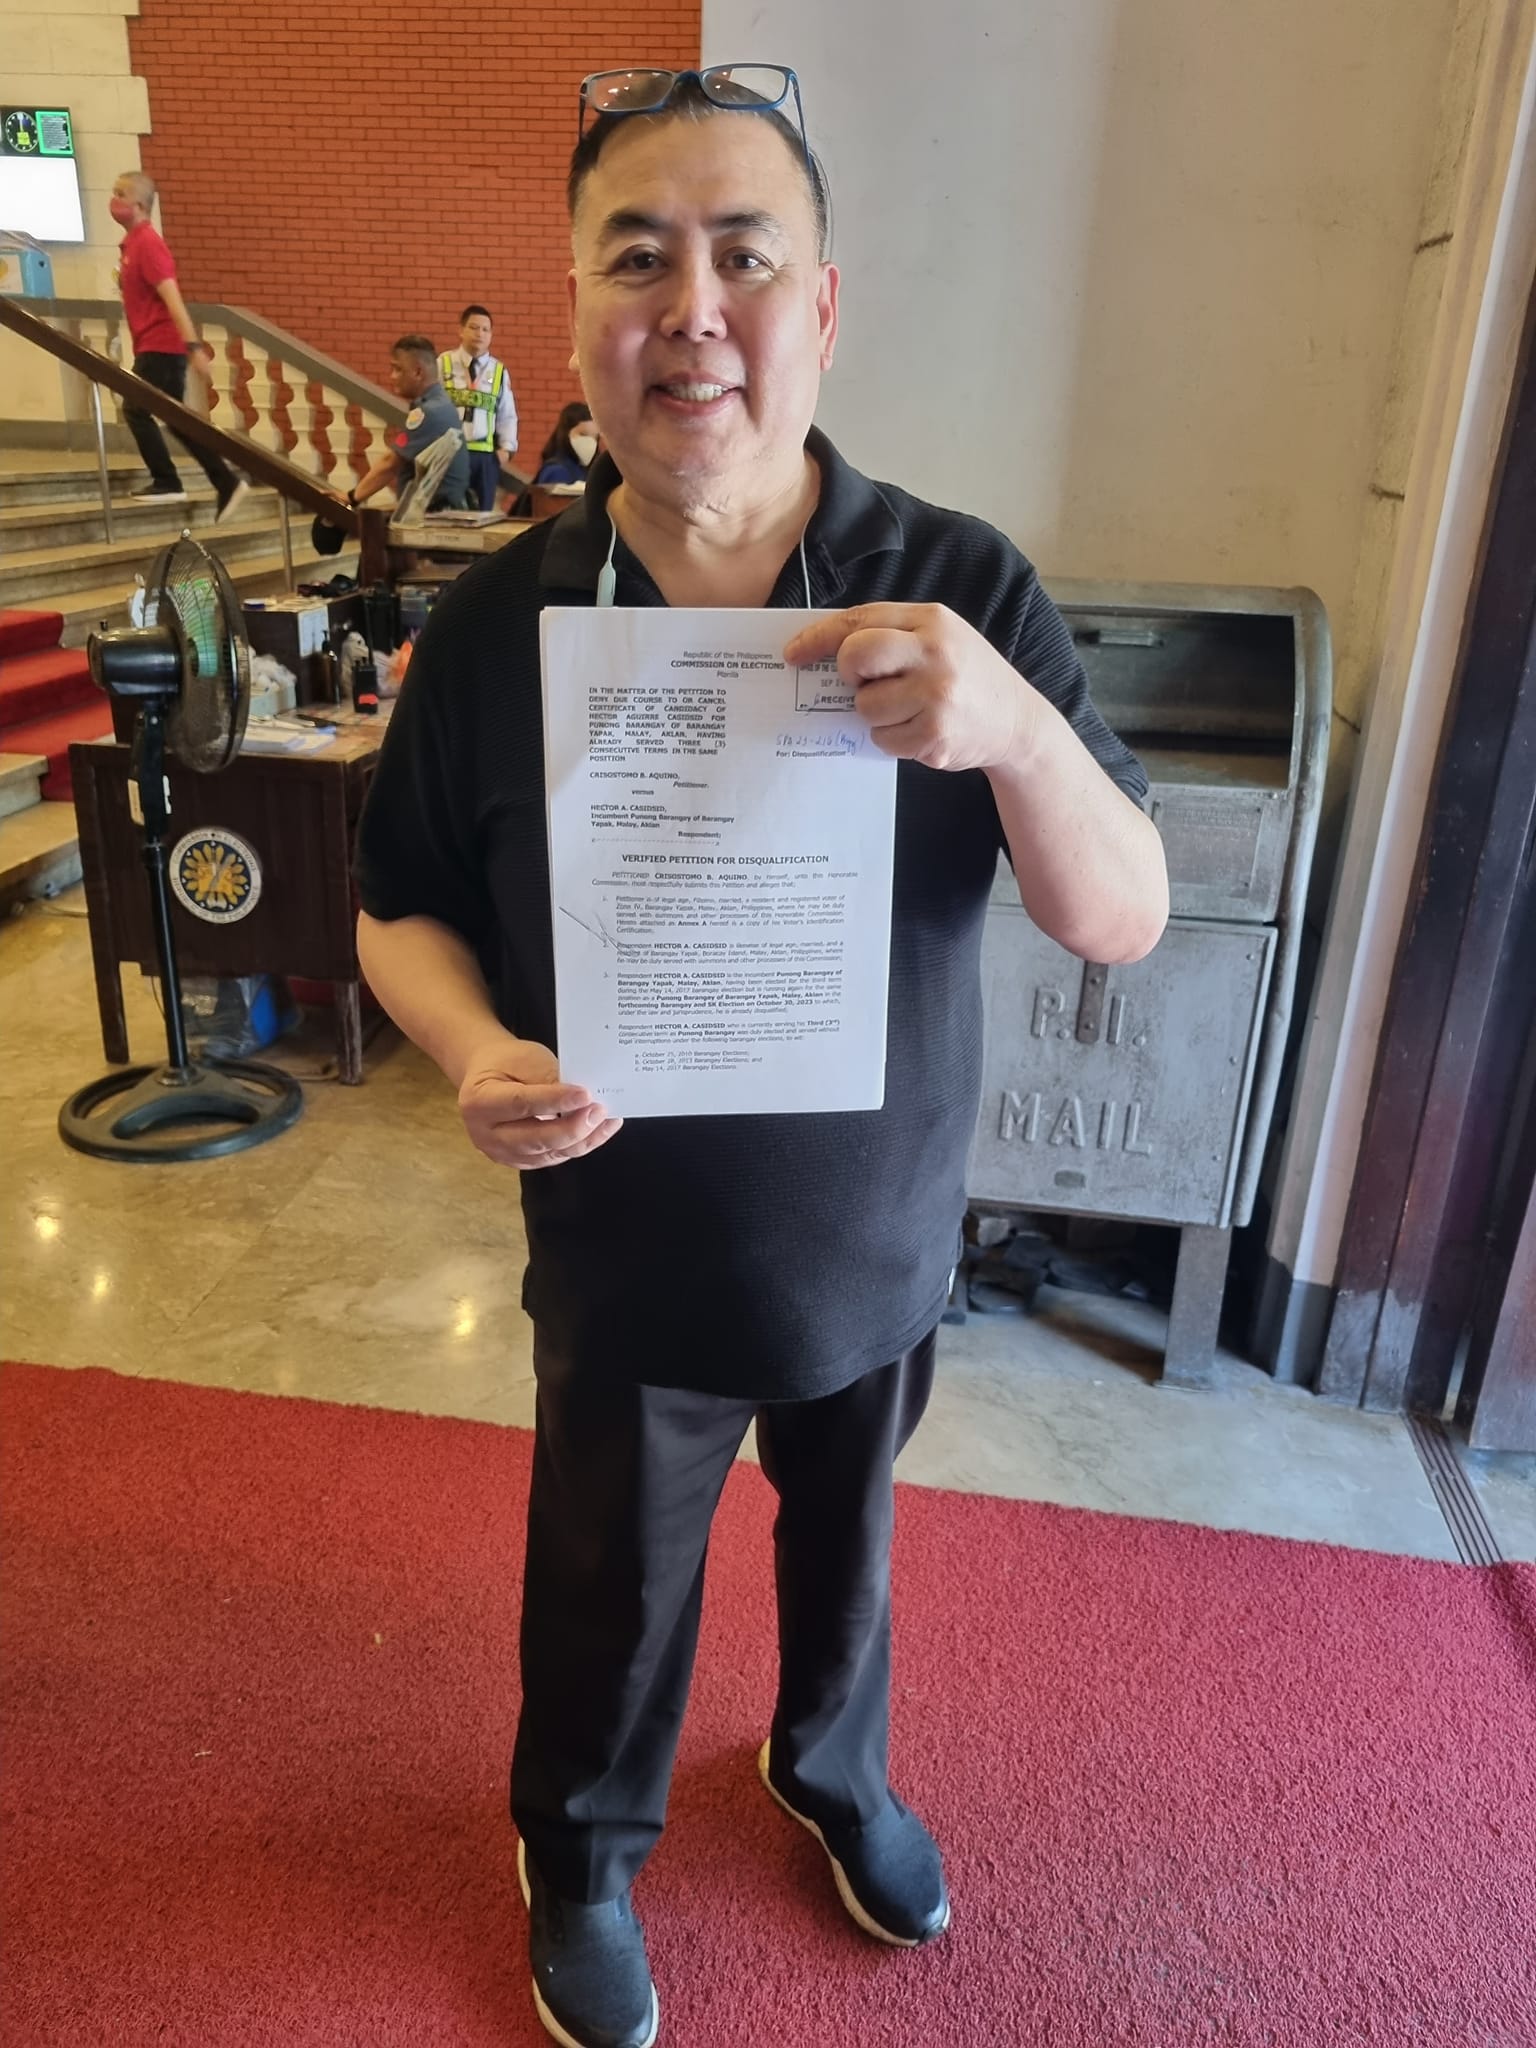 Republic of the Philippines
COMMISSION ON ELECTIONS
Manila
OFFICE OF THE
SEP
RECEIVE
IN THE MATTER OF THE PETITION TO
DENY DUE COURSE TO OR CANCEL
CERTIFICATE OF CANDIDACY OF
HECTOR AGUIRRE CASIDSID FOR
PUNONG BARANGAY OF BARANGAY
YAPAK, MALAY, AKLAN, HAVING
ALREADY SERVED THREE (3)
CONSECUTIVE TERMS IN THE SAME
POSITION
SPA 23-216 (Brgy)
For: Disqualification
CRISOSTOMO B. AQUINO,
Petitioner.
versus
HECTOR A. CASIDSID,
Incumbent Punong Barangay of Barangay
Yapak, Malay, Aklan
Respondent;
x--------------------------------x
VERIFIED PETITION FOR DISQUALIFICATION
PETITIONER CRISOSTOMO B. AQUINO, by himself, unto this Honorable
Commission, most respectfully submits this Petition and alleges that;
1. Petitioner is of legal age, Filipino, married, a resident and registered voter of
Zone IV, Barangay Yapak, Malay, Aklan, Philippines, where he may be duly
served with summons and other processes of this Honorable Commission.
Hereto attached as Annex A hereof is a copy of his Voter's Identification
Certification;
2. Respondent HECTOR A. CASIDSID is likewise of legal age, married, and a
resident of Barangay Yapak, Boracay Island, Malay, Aklan, Philippines, where
he may be duly served with summons and other processes of this Commission;
3. Respondent HECTOR A. CASIDSID is the incumbent Punong Barangay of
Barangay Yapak, Malay, Aklan, having been elected for the third term
during the May 14, 2017 barangay election but is running again for the same
position as a Punong Barangay of Barangay Yapak, Malay, Aklan in the
forthcoming Barangay and SK Election on October 30, 2023 to which,
under the law and jurisprudence, he is already disqualified;
4. Respondent HECTOR A. CASIDSID who is currently serving his Third (3rd)
consecutive term as Punong Barangay was duly elected and served without
legal interruptions under the following barangay elections, to wit:
a. October 25, 2010 Barangay Elections;
b. October 28, 2013 Barangay Elections; and
c. May 14, 2017 Barangay Elections.
P.I.
MAIL